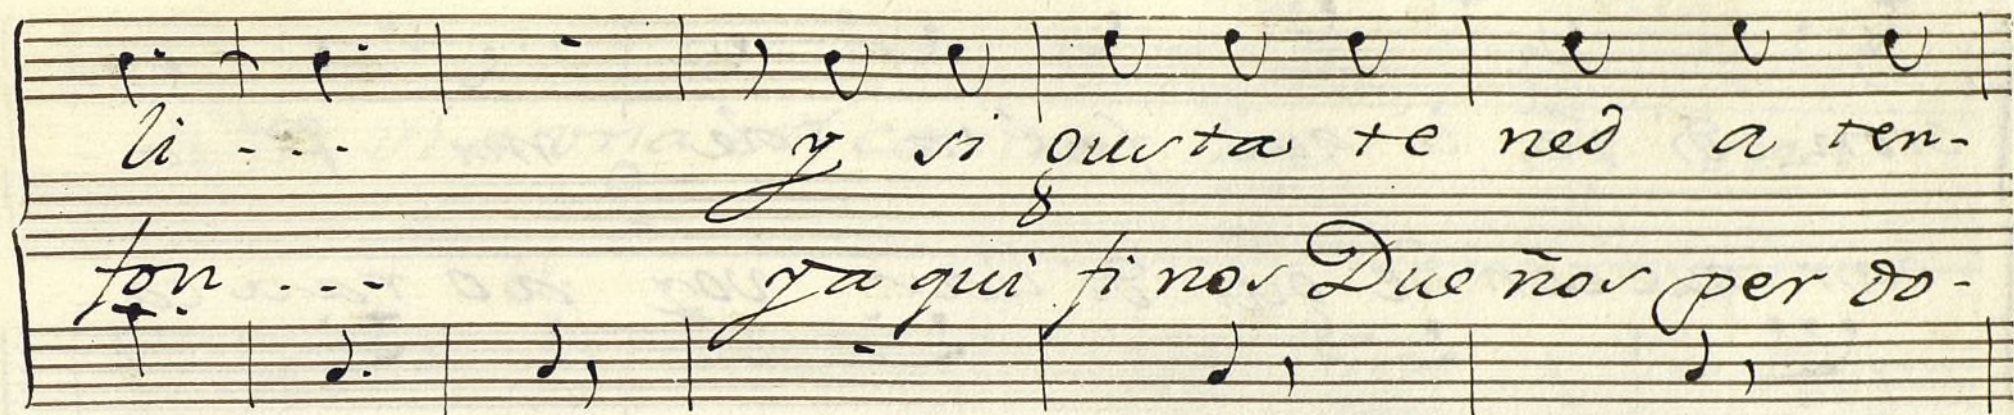 li - - - - y si gusta te ned a ten-
fon - - - - ya qui finos Due ños per do-